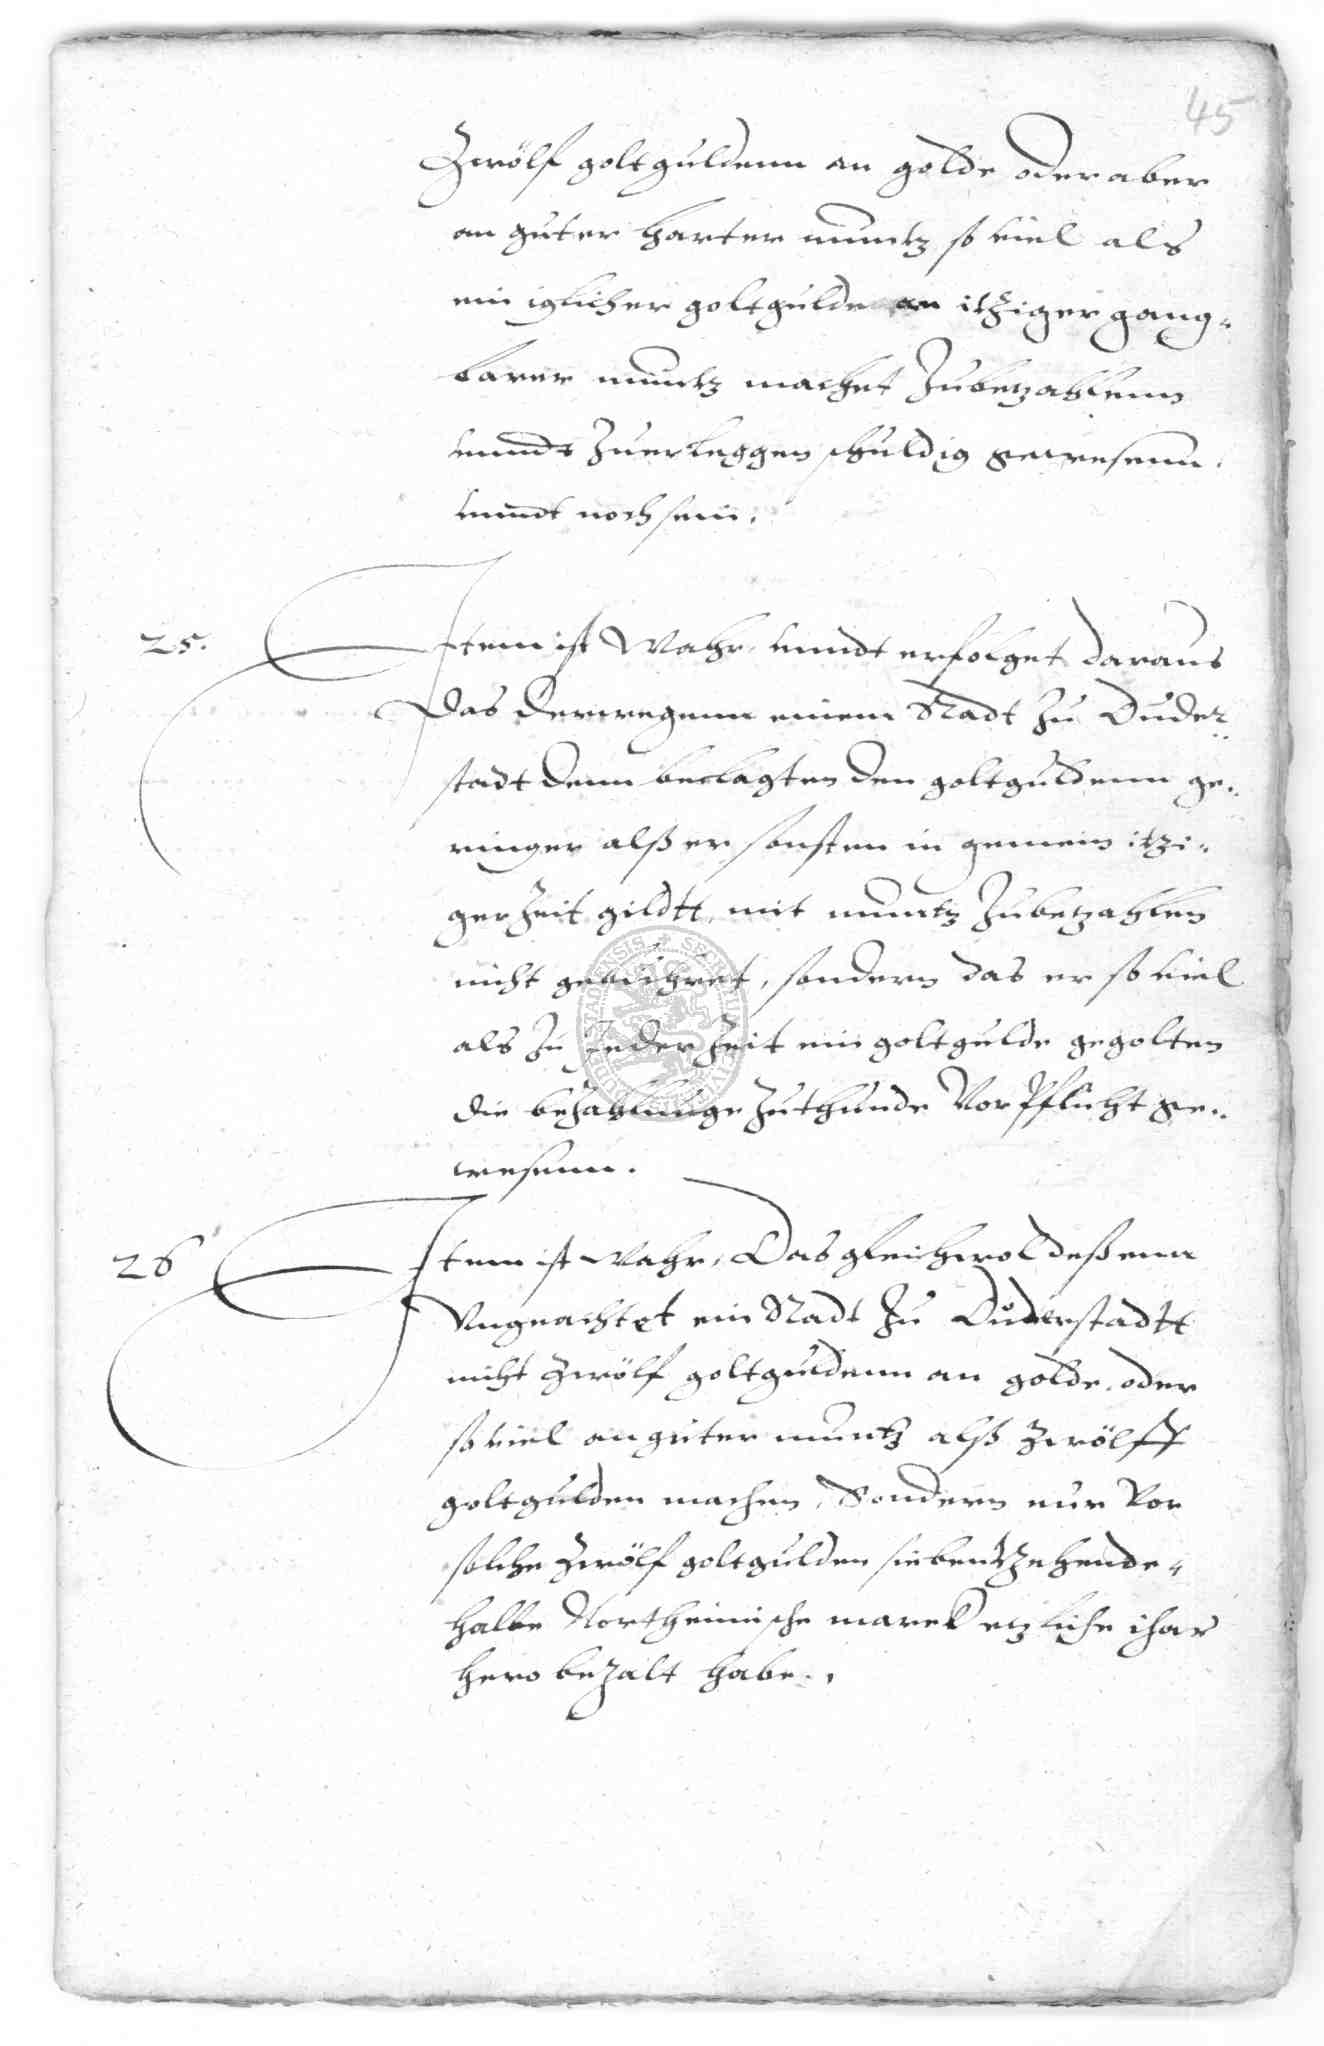 45
Zwölf goltguldenn an golde oder aber
an guter harter muntz so viel als
ein iglicher goltgulde an itziger gang-
barer muntz machet Zubetzahlenn
vnndt Zuerleggen schuldig gewesenn,
vnndt noch sein.
25. Item ist Wahr, vnndt erfolget daraus
Das derwegenn einem Radt Zu Duder-
stadt denn beclagten den goltguldenn ge-
ringer alß er sonsten in gemein itzi-
ger Zeit gildtt, mit muntz Zubetzahlen
nicht gebuhret, sondern das er so viel
als Zu Jeder Zeit ein goltgulde gegolten
die bezahlunge Zuthunde Vorpflicht ge-
wesenn.
26 Item ist Wahr, Das gleichwol deßenn
Vngeachtet ein Radt Zu Duderstadtt
nicht Zwölf goltguldenn an golde, oder
so viel an guter muntz alß Zwölff
goltgulden machen, Sondern nur Vor
solche Zwölf goltgulden siebentzehende-
halbe Northeimische marck etzliche ihar
hero bezalt habe.